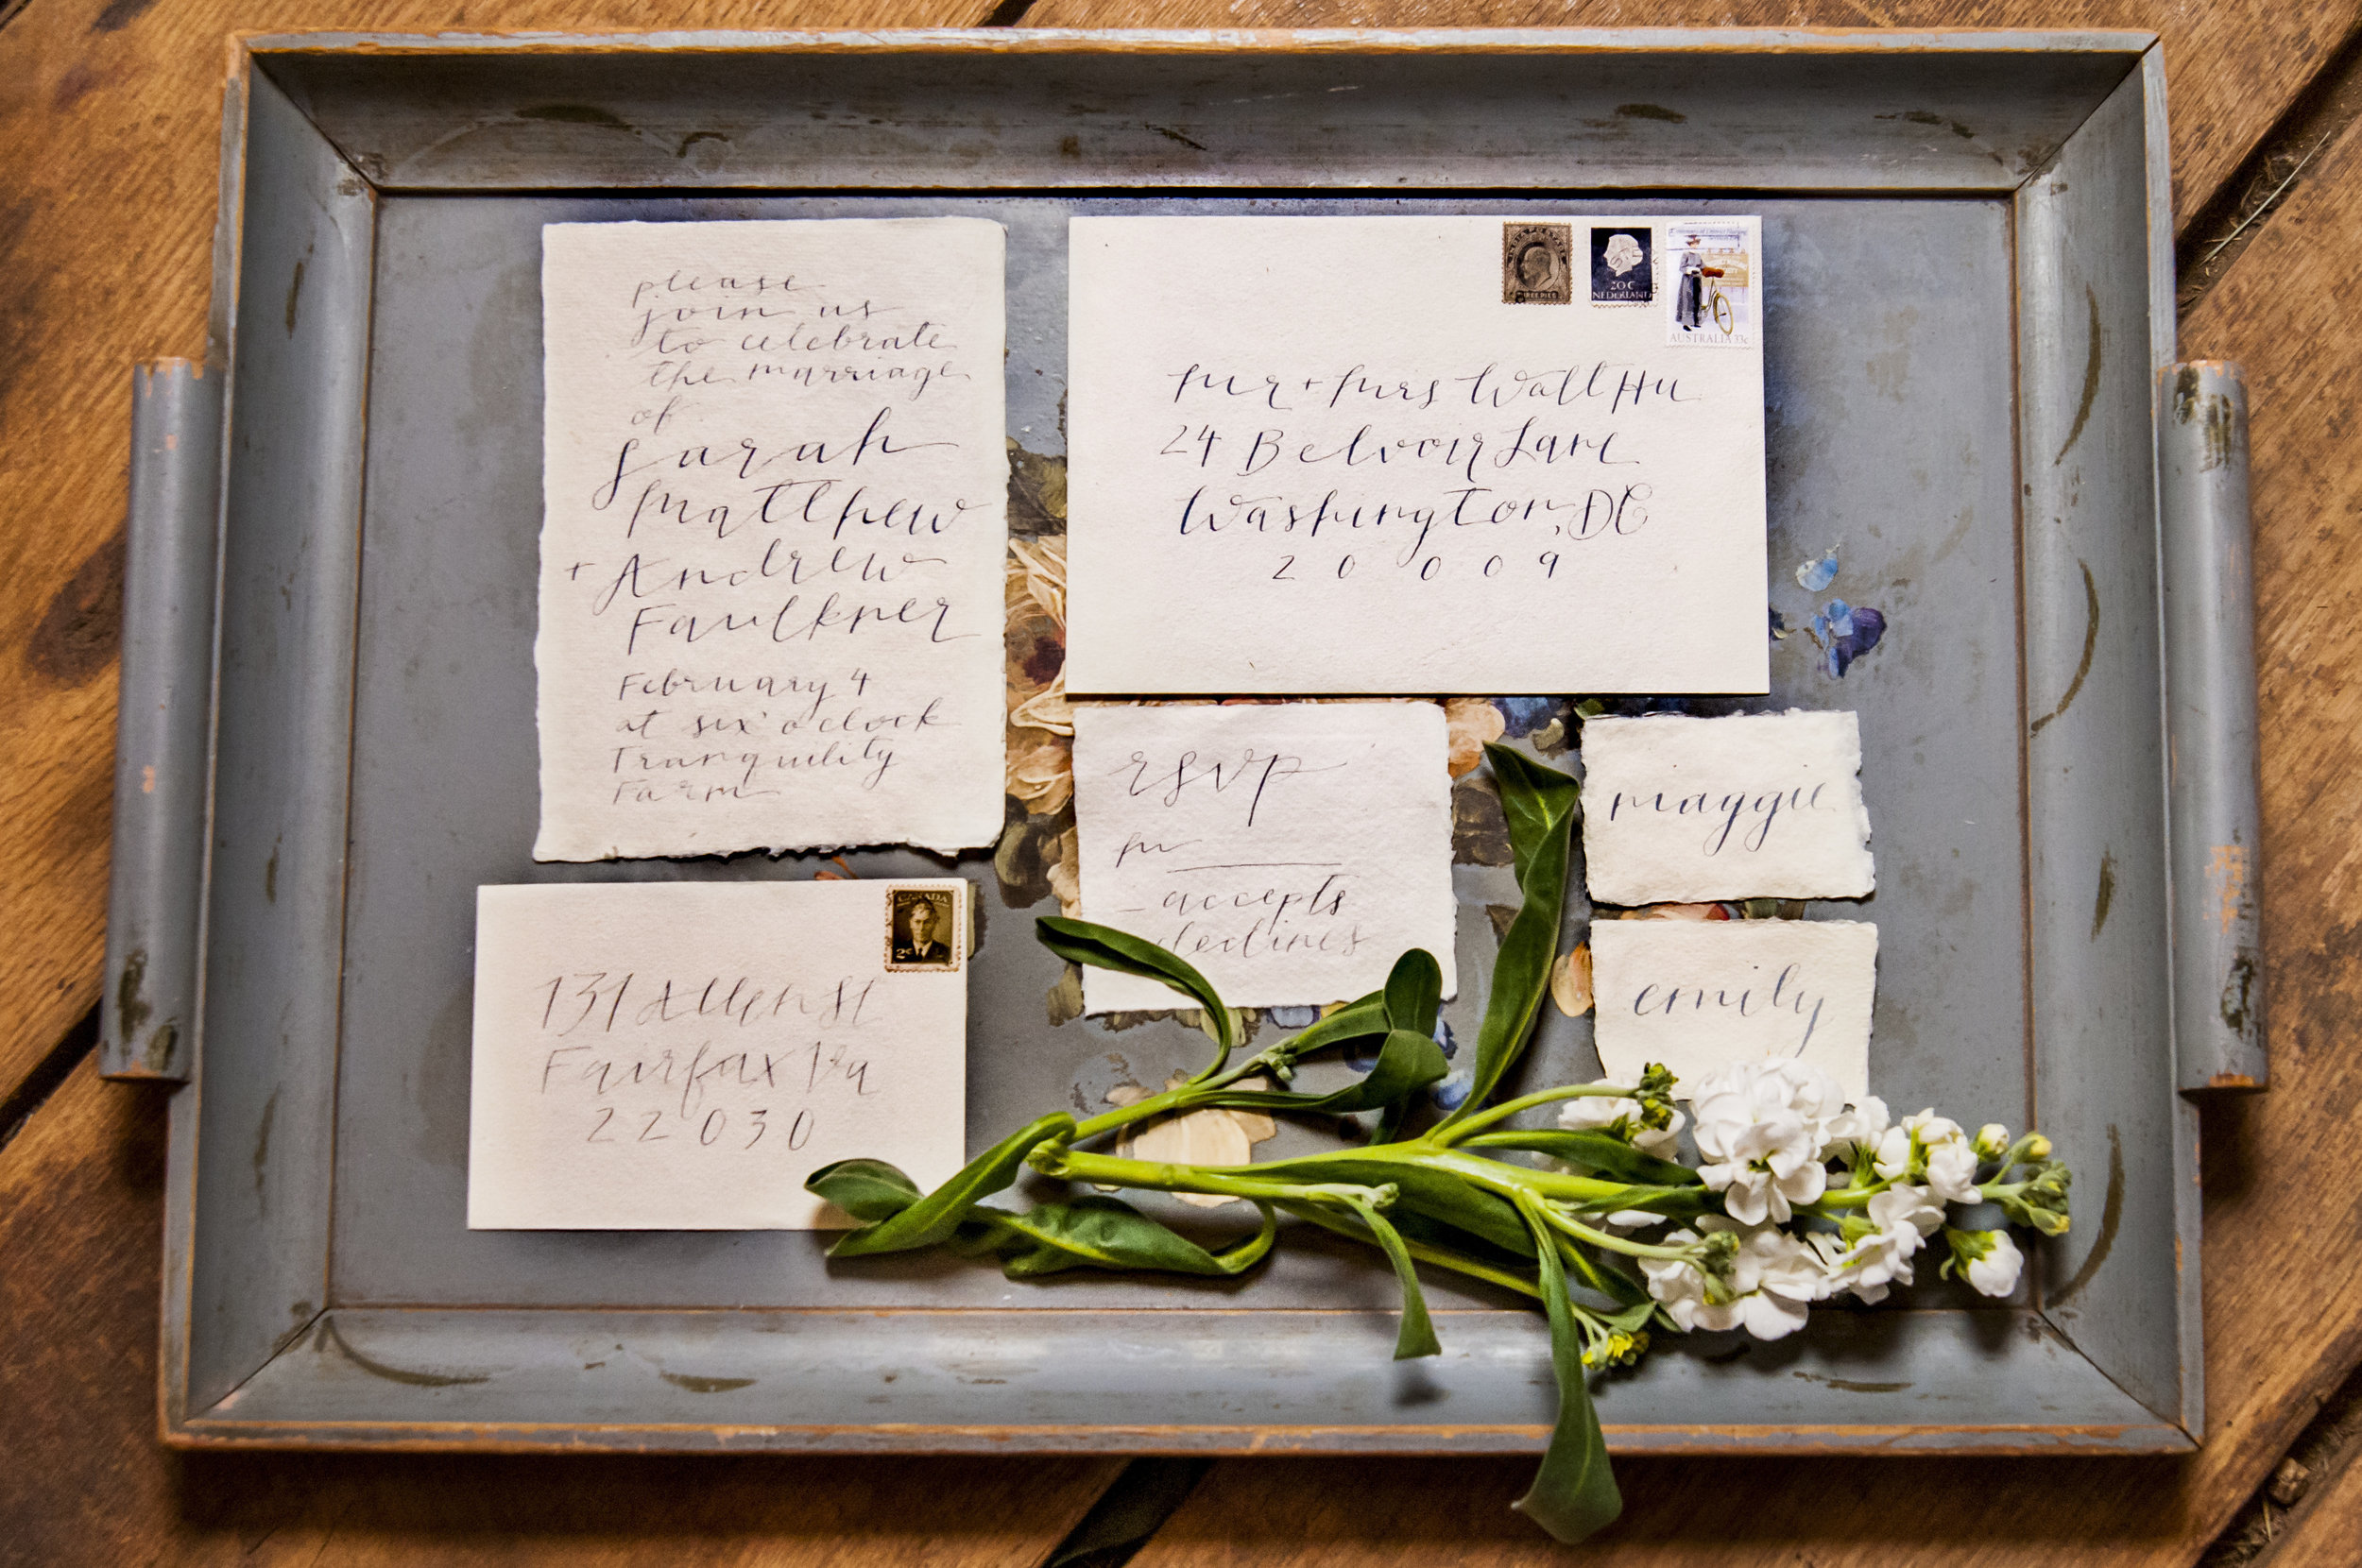 please
join us
to celebrate
the marriage
of
Sarah
Matthew
+ Andrew
Faulkner
February 4
at six o'clock
Tranquility
Farm
NEDERLAND
20 C
AUSTRALIA 33c
Mr + Mrs Wall Hu
24 Belvoir Lane
Washington, DC
20009
rsvp
M
accepts
declines
maggie
emily
CANADA
2c
131 Allen St
Fairfax Va
22030